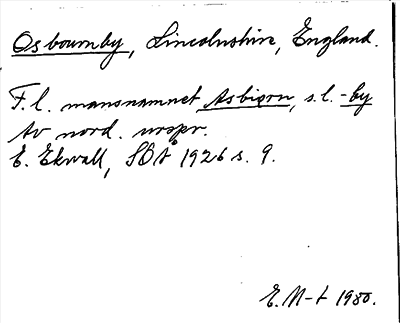 Osbournby, Lincolnshire, England.
F.l. mansnamnet Asbiørn, s.l. -by
Av nord. urspr.
E. Ekwall, SOÅ 1926 s. 9.
E. M-t 1980.